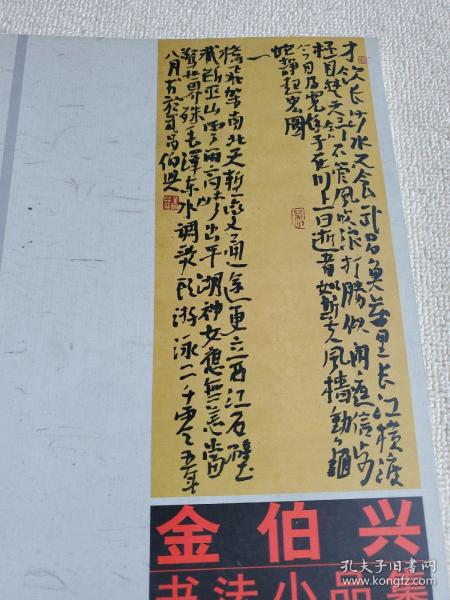 才饮长沙水又食武昌鱼万里长江横渡
极目楚天舒不管风吹浪打勝似闲庭信步
今日得宽余子在川上曰逝者如斯夫风樯动龜
蛇静起宏图
一
橋飞架南北天堑变通途更立西江石壁
截断巫山雲雨高峡出平湖神女應無恙當
驚世界殊毛澤东水調歌頭游泳二千零零五年
八月武昌伯兴
金伯兴
书法小品集
孔夫子旧书网
kongfz.com